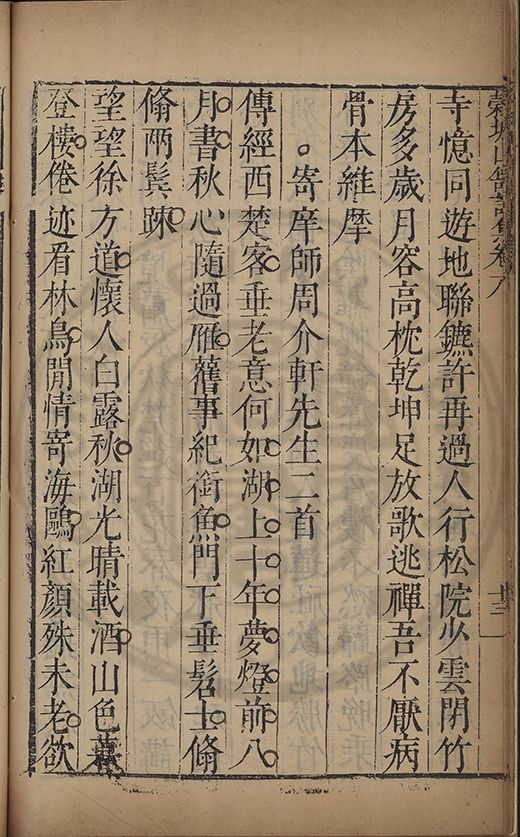 穀城山館詩集卷八
寺憶同遊地聯鑣許再過人行松院少雲閉竹
房多歲月容高枕乾坤足放歌逃禪吾不厭病
骨本維摩
寄座師周介軒先生二首
傳經西楚客垂老意何如湖上十年夢燈前八
月書秋心隨過雁舊事紀銜魚門下垂髫士翛
翛兩鬢踈
望望徐方道懷人白露秋湖光晴載酒山色暮
登樓倦迹看林鳥閒情寄海鷗紅顏殊未老欲
廿三